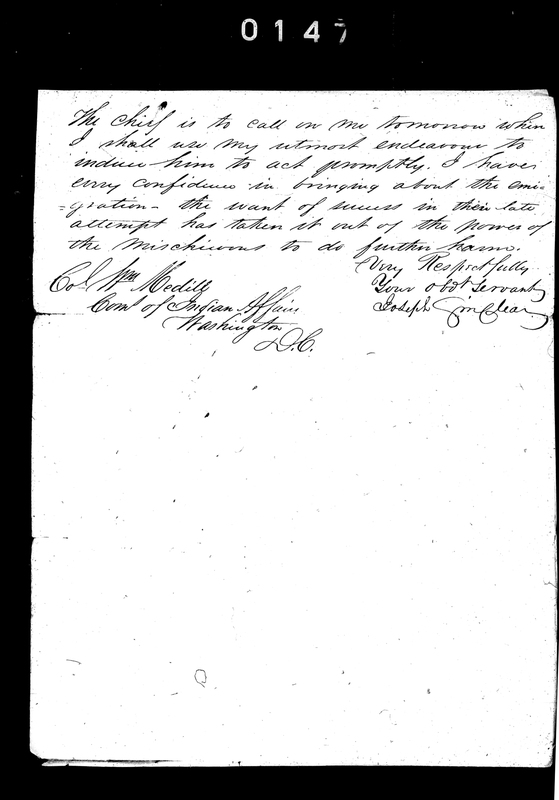 0147
The chief is to call on me tomorrow when
I shall use my utmost endeavour to
induce him to act promptly. I have
every confidence in bringing about the emi-
=gration - the want of success in their late
attempt has taken it out of the power of
the mischievous to do further harm.
Very Respectfully
Your obdt Servant
Joseph Sinclear
Col Wm Medill
Coms of Indian Affairs
Washington
D.C.